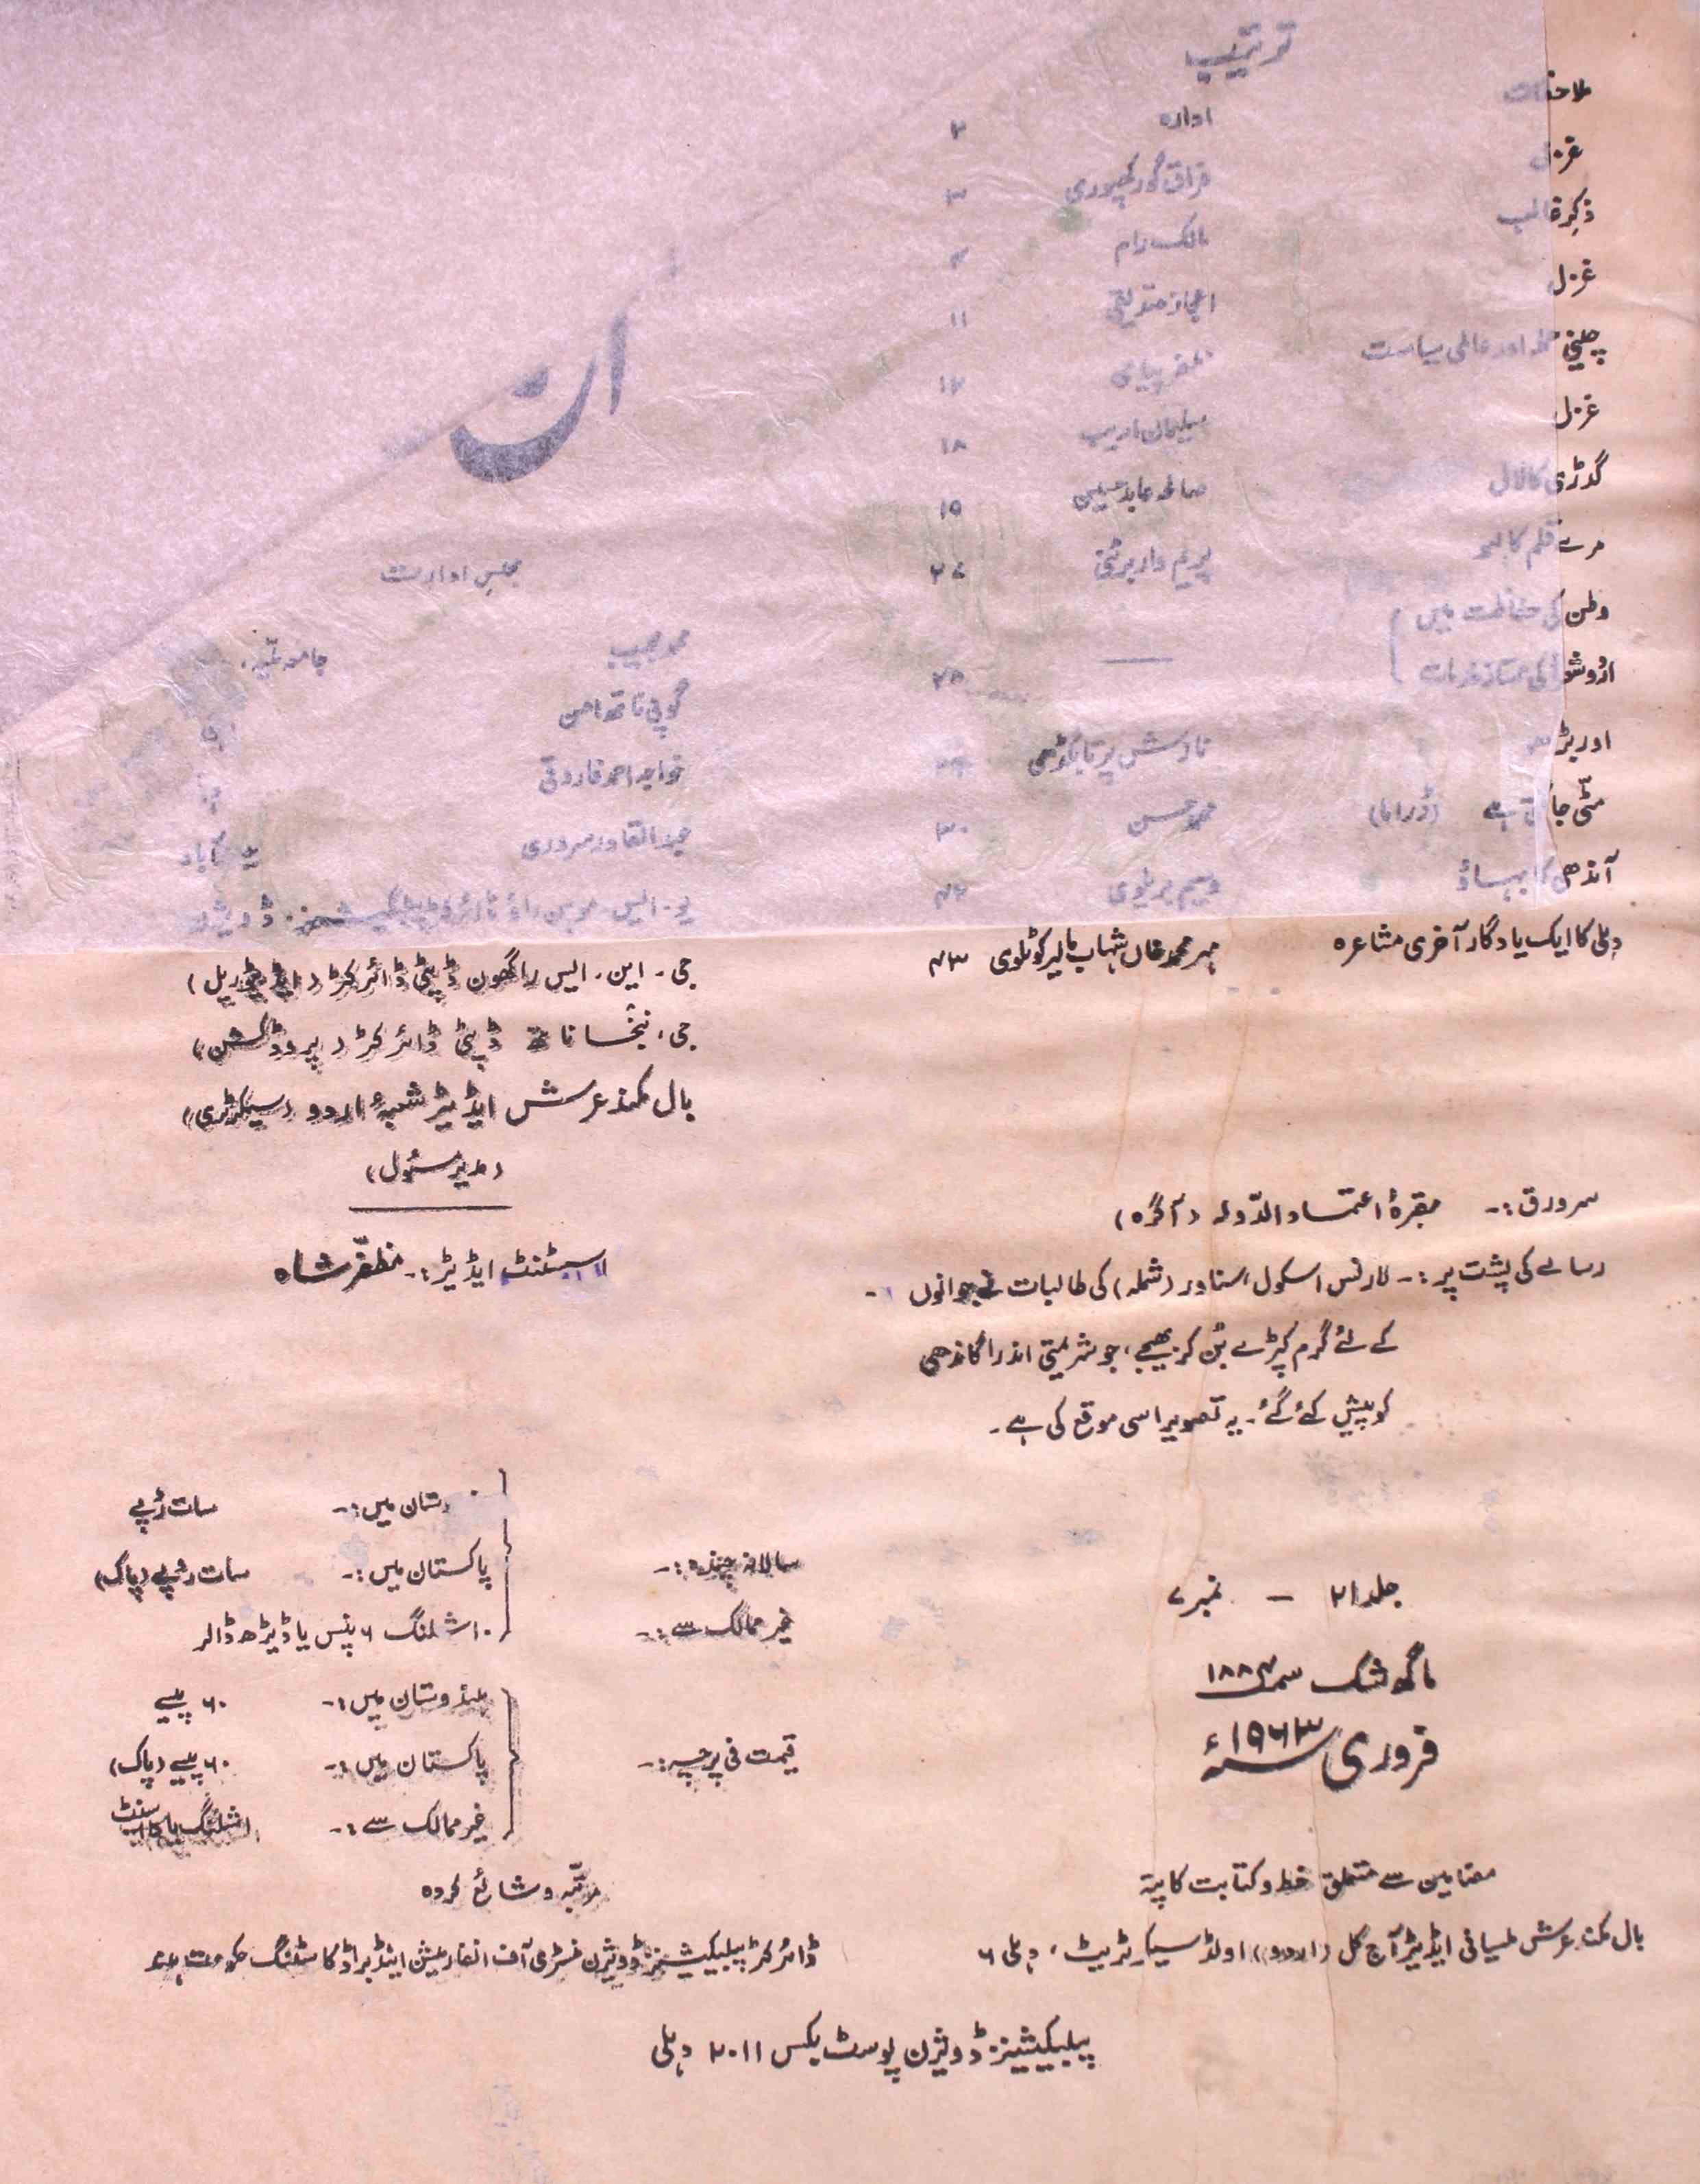 ترتیب
ملاحظات ادارہ ۲
غزل فراق گورکھپوری ۳
ذکرِ غالب مالک رام ۴
غزل اعجاز صدیقی ۱۱
چینی حملہ اور عالمی سیاست ظفر پیامی ۱۲
غزل سلیمان اریب ۱۸
گدڑی کا لال صالحہ عابد حسین ۱۹
مرے قلم کا لہو پریم واربرٹنی ۲۷
وطن کی حفاظت میں
اور بڑھو نازش پرتاپگڈھی
مٹّی جاگتی ہے (ڈراما) محمد حسن ۳۰
آندھی کا بہاؤ وسیم بریلوی ۴۲
دہلی کا ایک یادگار آخری مشاعرہ مہر محمد خاں شہاب مالیرکوٹلوی ۴۳
سرورق:۔ مقبرۂ اعتماد الدّولہ (آگرہ)
رسالے کی پشت پر:۔ لارنس اسکول، سناور (شملہ) کی طالبات نے جوانوں
کے لئے گرم کپڑے بُن کر بھیجے، جو شریمتی اندرا گاندھی
کو پیش کئے گئے۔ یہ تصویر اسی موقع کی ہے۔
جلد ۲۱ – نمبر ۷
ماگھ شک سمت ۱۸۸۴
فروری ۱۹۶۳ء
مضامین سے متعلق خط و کتابت کا پتہ
بال مکند عرش ملسیانی ایڈیٹر آج کل (اردو) اولڈ سیکریٹریٹ، دہلی ۶
ان
مجلسِ ادارت
محمد مجیب جامعہ ملیہ،
گوپی ناتھ امن
خواجہ احمد فاروقی
عبدالقادر سروری
یو۔ ایس۔ موہن راؤ ڈائرکٹر پبلیکیشنز ڈویژن
جی۔ این۔ ایس راگھون ڈپٹی ڈائرکٹر (ایڈیٹوریل)
جی، ننجا ناتھ ڈپٹی ڈائرکٹر (پروڈکشن)
بال مکند عرش ایڈیٹر شعبۂ اردو (سیکرٹری)
(مدیر مسئول)
اسسٹنٹ ایڈیٹر:۔ مظفّر شاہ
سالانہ چندہ:۔ ستان میں:۔ سات رُپے
پاکستان میں:۔ سات رُپے (پاک)
غیر ممالک سے:۔ ۱۰ شلنگ ۶ پنس یا ڈیڑھ ڈالر
قیمت فی پرچہ:۔ ہندوستان میں:۔ ۶۰ پیسے
پاکستان میں:۔ ۶۰ پیسے (پاک)
غیر ممالک سے:۔ ۱ شلنگ یا ۱۵ سنٹ
مرتّبہ و شائع کردہ
ڈائرکٹر پبلیکیشنز ڈویژن منسٹری آف انفارمیشن اینڈ براڈکاسٹنگ حکومت ہند
پبلیکیشنز ڈویژن پوسٹ بکس ۲۰۱۱ دہلی